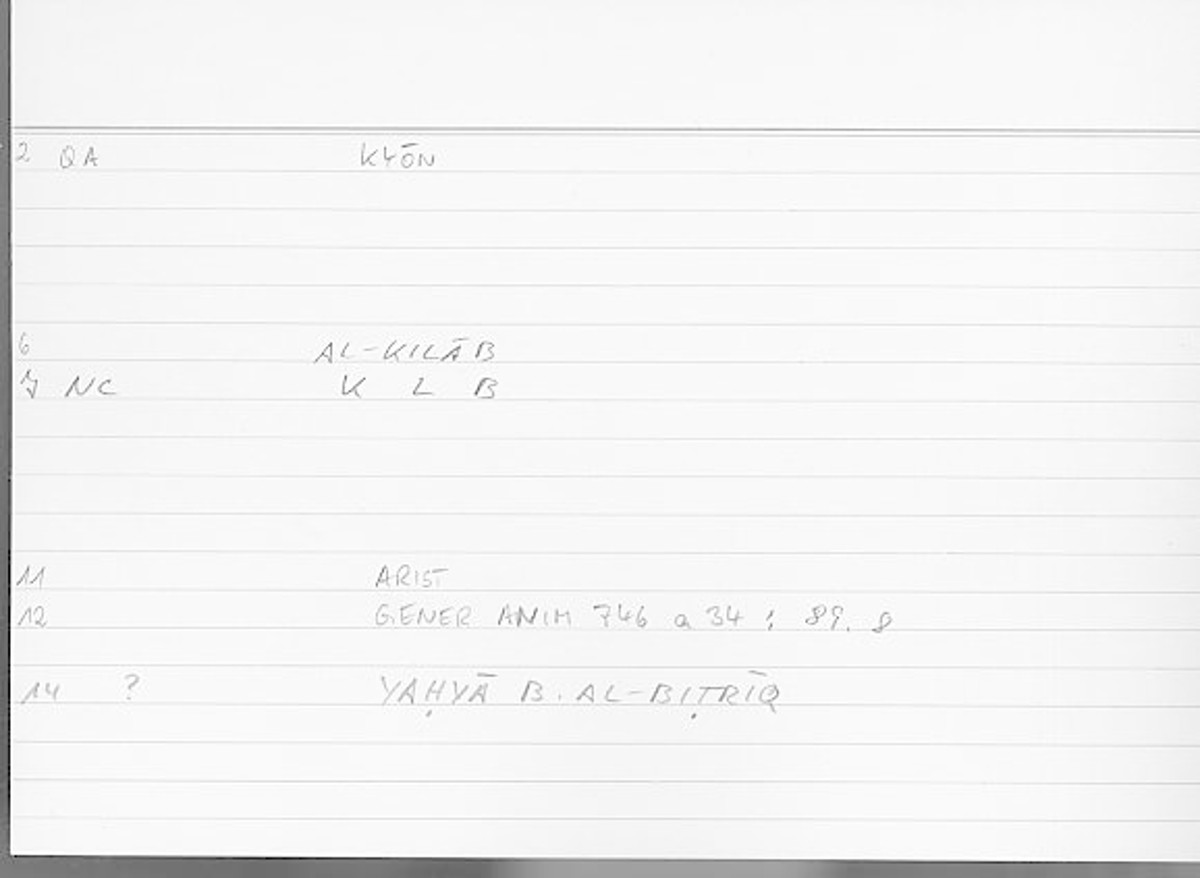 2 QA KYŌN
6 AL-KILĀB
7 NC K L B
11 ARIST
12 GENER ANIM 746 a 34 ; 89. 8
14 ? YAḤYĀ B. AL-BIṬRĪQ